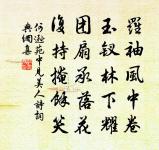 羅袖風中卷
玉釵林下耀
團扇承落花
復持掩餘笑
何遜苑中見美人詩詞
典網集